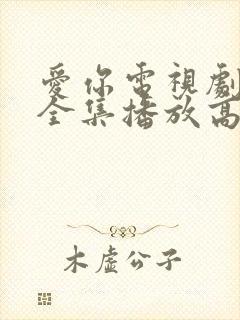 愛你電視劇
全集播放高
木虛公子